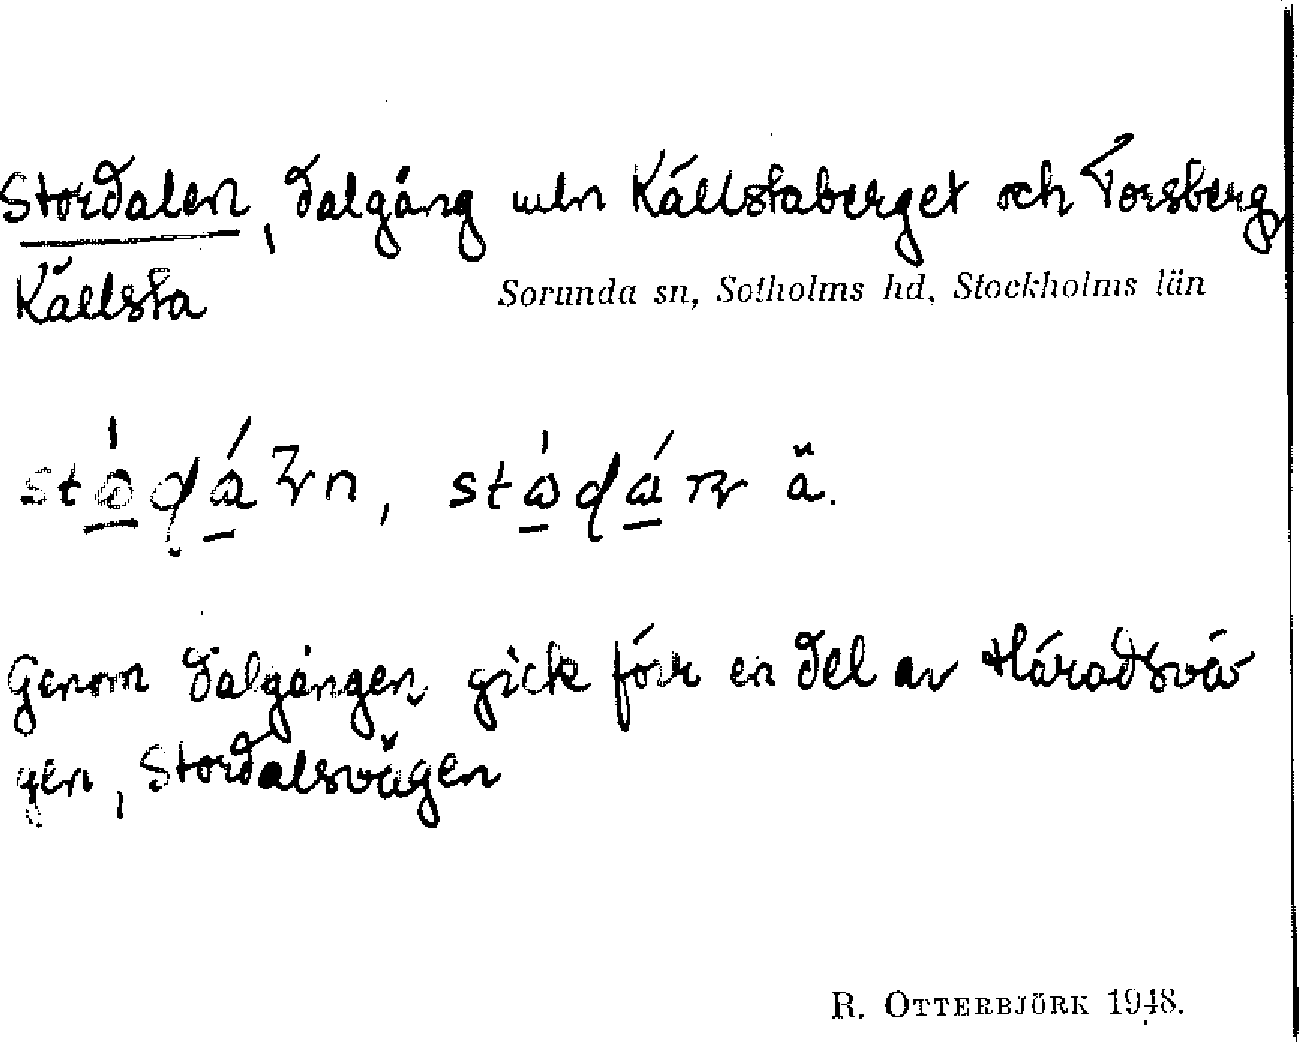 Stordalen, dalgång mln Källstaberget och Torsberg,
Källsta
Sorunda sn, Sotholms hd, Stockholms län
ä.
Genom dalgången gick förr en del av Häradsvä
gen, Stordalsvägen
R. OTTERBJÖRK 1948.